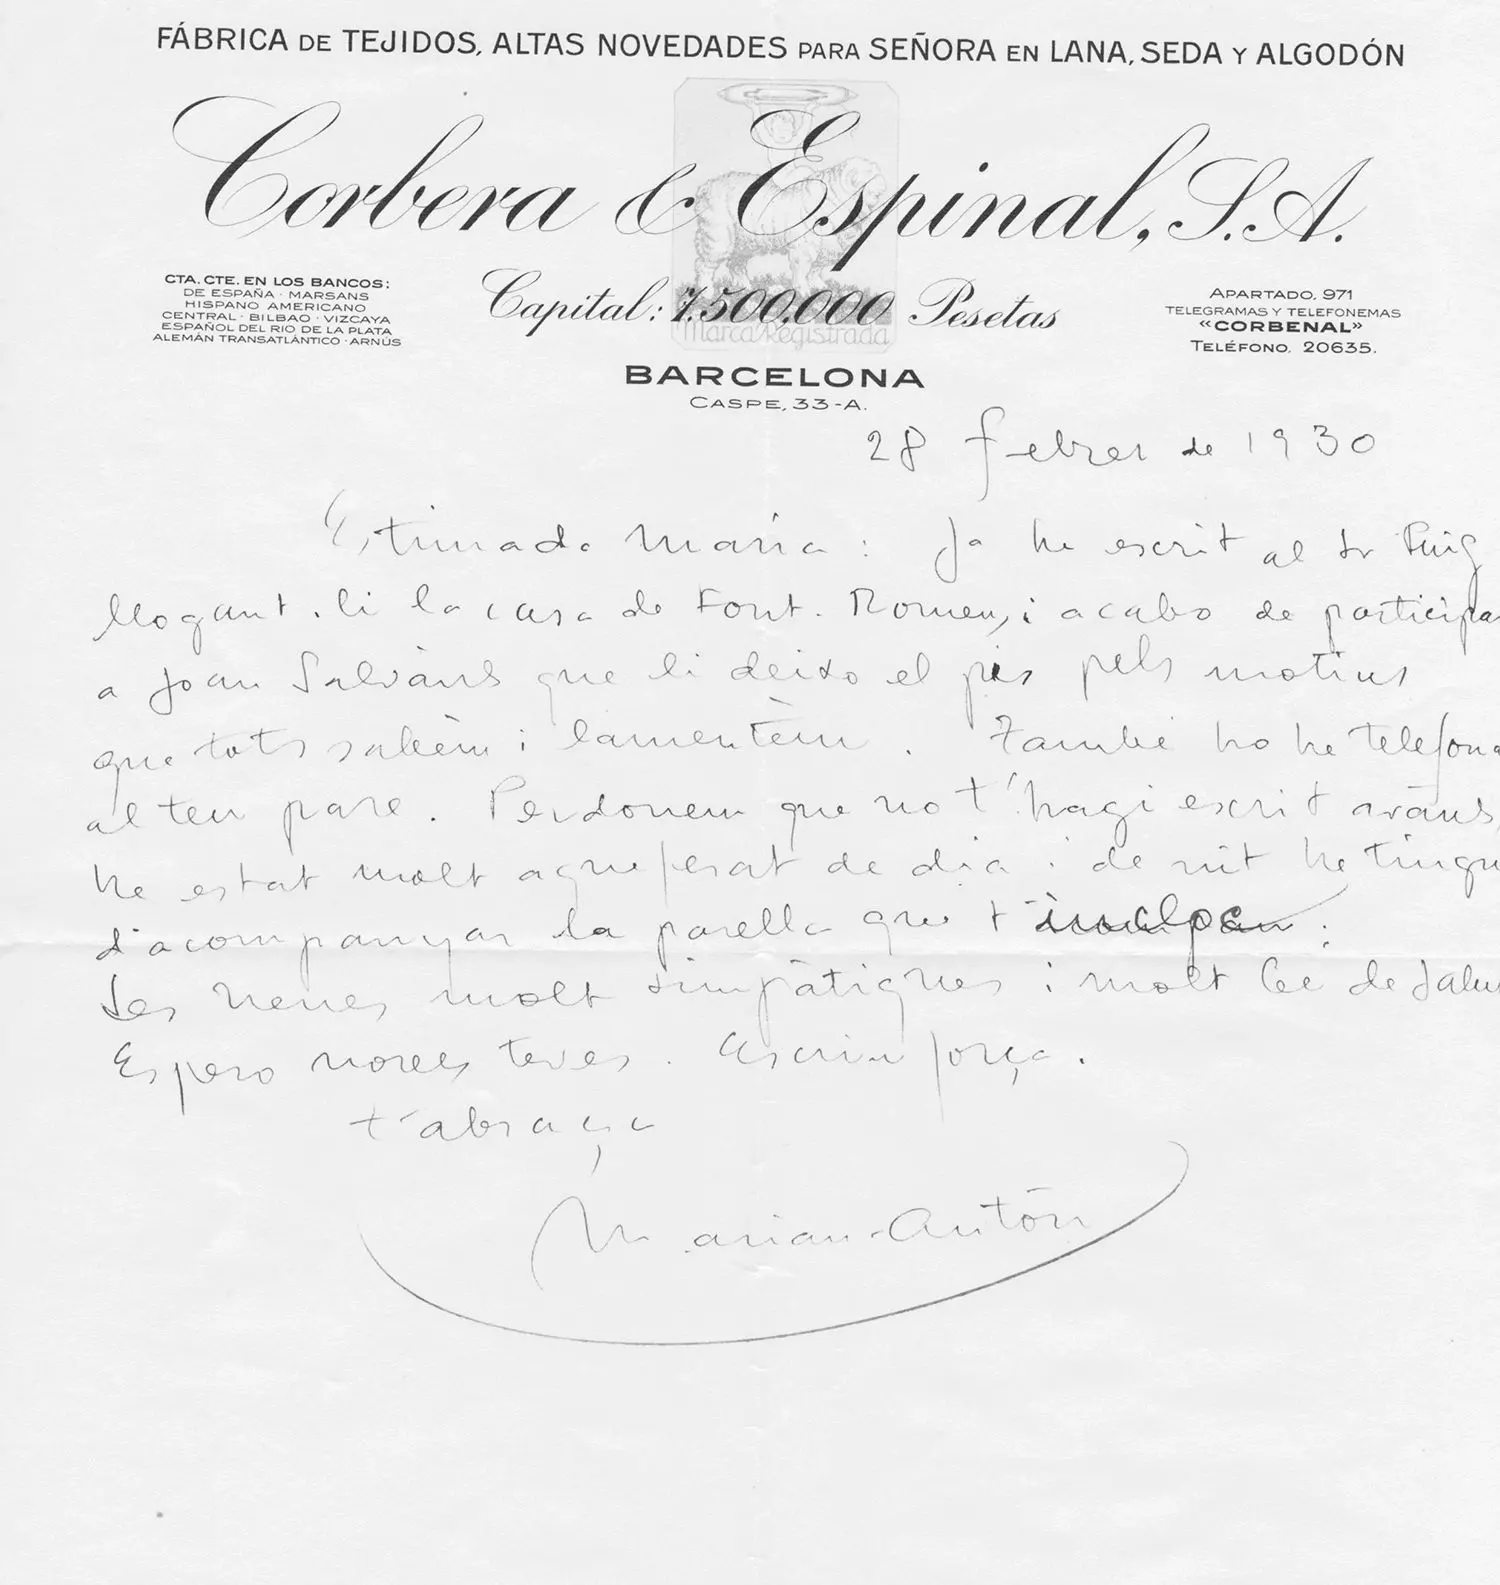 FÁBRICA DE TEJIDOS, ALTAS NOVEDADES PARA SEÑORA EN LANA, SEDA Y ALGODÓN
Corbera & Espinal, S.A.
CTA. CTE. EN LOS BANCOS:
DE ESPAÑA · MARSANS
HISPANO AMERICANO
CENTRAL · BILBAO · VIZCAYA
ESPAÑOL DEL RIO DE LA PLATA
ALEMÁN TRANSATLÁNTICO · ARNÚS
Capital: 7.500,000 Pesetas
Marca Registrada
APARTADO. 971
TELEGRAMAS Y TELEFONEMAS
«CORBENAL»
TELÉFONO. 20635.
BARCELONA
CASPE, 33-A.
28 febrer de 1930
Estimada Maria: Ja he escrit al Sr Puig
llogant-li la casa de Font-Romeu, i acabo de participar
a Joan Salvàns que li deixo el pis pels motius
que tots sabèm i lamentèm. També ho he telefona
al teu pare. Perdonem que no t'hagi escrit avans,
he estat molt aqueferat de dia i de nit he tingu
d'acompanyar la parella que t'
Les nenes molt simpàtiques i molt bé de salu
Espero noves teves. Escriu força.
t'abraça
Marian-Antón